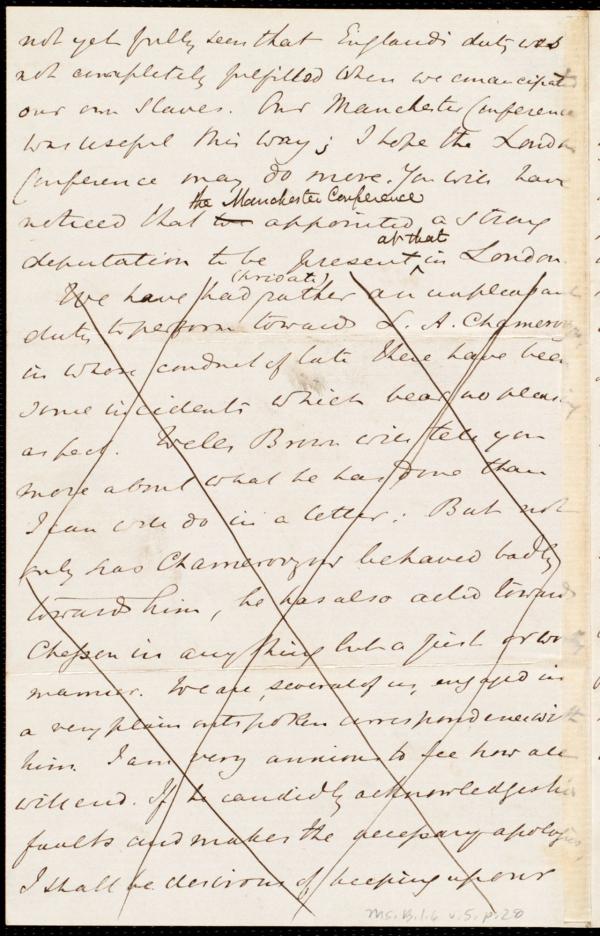 not yet fully seen that England's duty was
not completely fulfilled when we emancipated
our own slaves. Our Manchester Conference
was useful this way; I hope the London
Conference may do more. You will have
the Manchester Conference
noticed that we appointed a strong
at that
deputation to be present in London.
(private)
We have had rather an unpleasant
duty to perform towards L. A. Chamerovzow
in whose conduct of late there have been
some incidents which bear no pleasing
aspect. Wells Brown will tell you
more about what he has done than
I can well do in a letter: But not
only has Chamerovzow behaved badly
towards him, he has also acted towards
Chesson in any thing but a just or worthy
manner. We are, several of us, engaged in
a very plain outspoken correspondence with
him. I am very anxious to see how all
will end. If he candidly acknowledges his
faults and makes the necessary apologies,
I shall be desirous of keeping up our
Ms. B. 1. 6 v. 5. p. 20